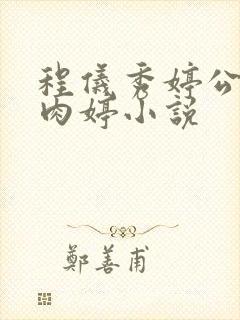 程儀秀婷公
肉婷小説
鄭善甫